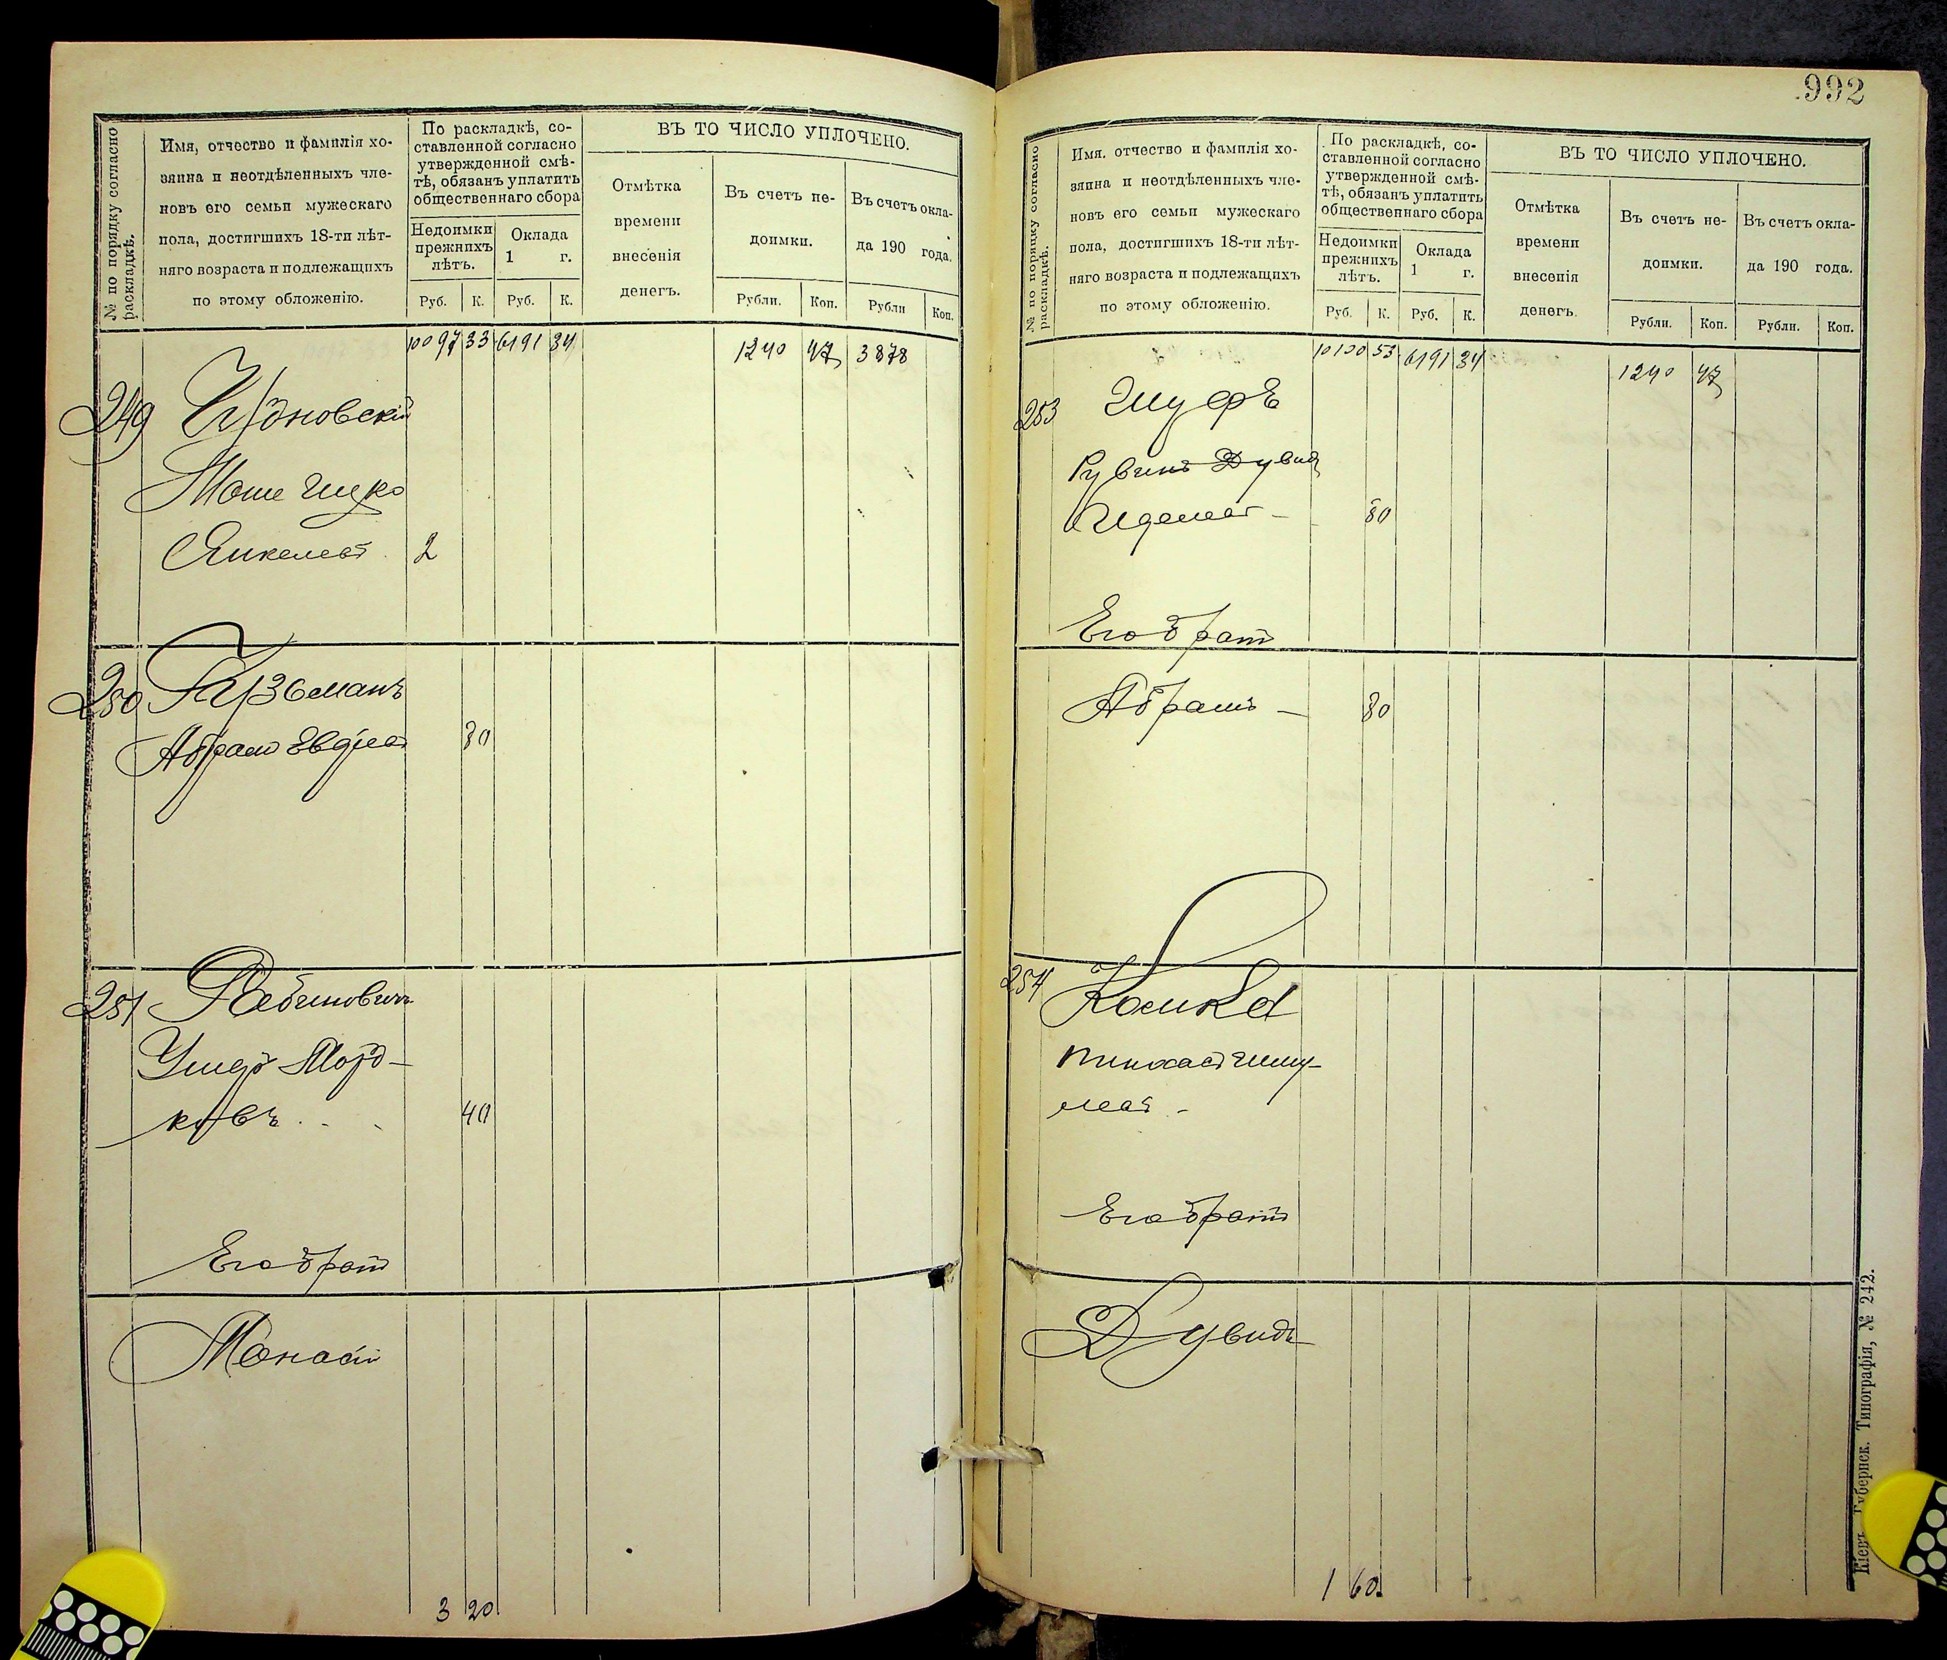 № по порядку согласно раскладкѣ.
Имя, отчество и фамилія хо-
зяина и неотдѣленныхъ чле-
новъ его семьи мужескаго
пола, достигшихъ 18-ти лѣт-
няго возраста и подлежащихъ
по этому обложенію.
По раскладкѣ, со-
ставленной согласно
утвержденной смѣ-
тѣ, обязанъ уплатить
общественнаго сбора
Недоимки
прежнихъ
лѣтъ.
Оклада
1 г.
Руб. К. Руб. К.
ВЪ ТО ЧИСЛО УПЛОЧЕНО.
Отмѣтка
времени
внесенія
денегъ.
Въ счетъ не-
доимки.
Рубли. Коп.
Въ счетъ окла-
да 190 года.
Рубли Коп.
10097 33 6191 34 1240 47 3878
249
Моше
Янкелев 2
250
Абрам 80
251 Рабинович
Ушер Морд-
ковъ 40
Его брат
Монасій
3 20
992
№ по порядку согласно раскладкѣ.
Имя. отчество и фамилія хо-
зяина и неотдѣленныхъ чле-
новъ его семьи мужескаго
пола, достигшихъ 18-ти лѣт-
няго возраста и подлежащихъ
по этому обложенію.
По раскладкѣ, со-
ставленной согласно
утвержденной смѣ-
тѣ, обязанъ уплатить
общественнаго сбора
Недоимки
прежнихъ
лѣтъ.
Оклада
1 г.
Руб. К. Руб. К.
ВЪ ТО ЧИСЛО УПЛОЧЕНО.
Отмѣтка
времени
внесенія
денегъ.
Въ счетъ не-
доимки.
Рубли. Коп.
Въ счетъ окла-
да 190 года.
Рубли. Коп.
10100 53 6191 34 1240 47
253 Шуфъ
Рувинъ Дувид
80
Его брат
Абрамъ — 80
254
Пинхас Шму-
лев -
Его брат
Дувидъ
1 60
Кіевъ. Губернск. Типографія, № 242.